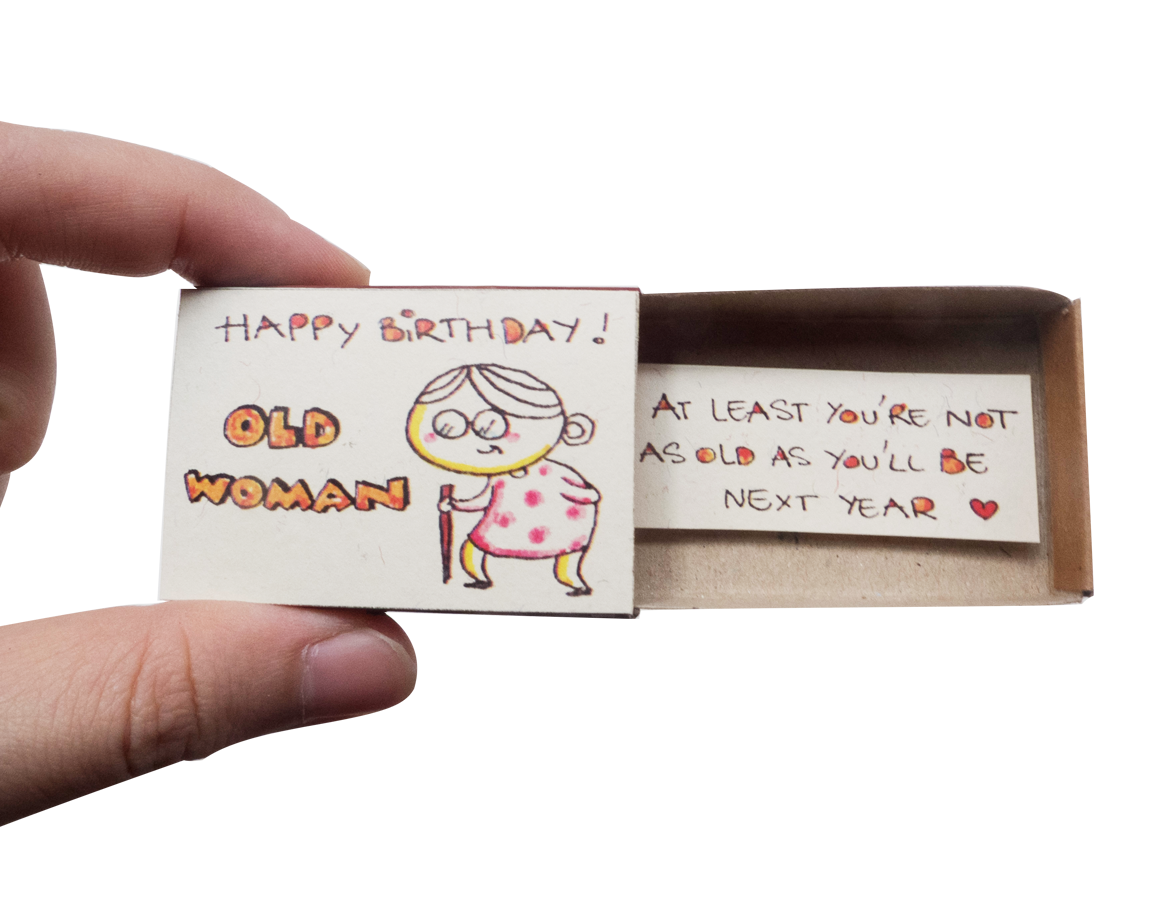 HAPPY BIRTHDAY!
OLD
WOMAN
AT LEAST YOU'RE NOT
AS OLD AS YOU'LL BE
NEXT YEAR